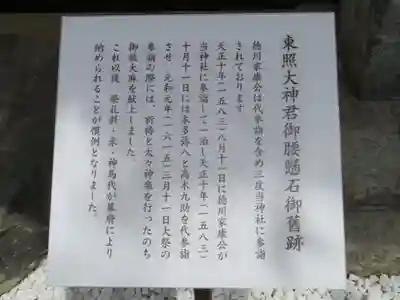 東照大神君御腰懸石御舊跡
徳川家康公は代参詣を含め三度当神社に参詣
されております
天正十年(一五八三)八月十一日に徳川家康公が
当神社に参詣して一泊し天正十年(一五八三)
十月十一日には本多弥八と高木九助を代参詣
させ、元和元年(一六一五)三月十一日大祭の
参詣の際には、祈祷と太々神楽を行ったのち
御祓大麻を献上しました。
これ以後 祭礼料・米・神馬代が幕府により
納められることが慣例となりました。